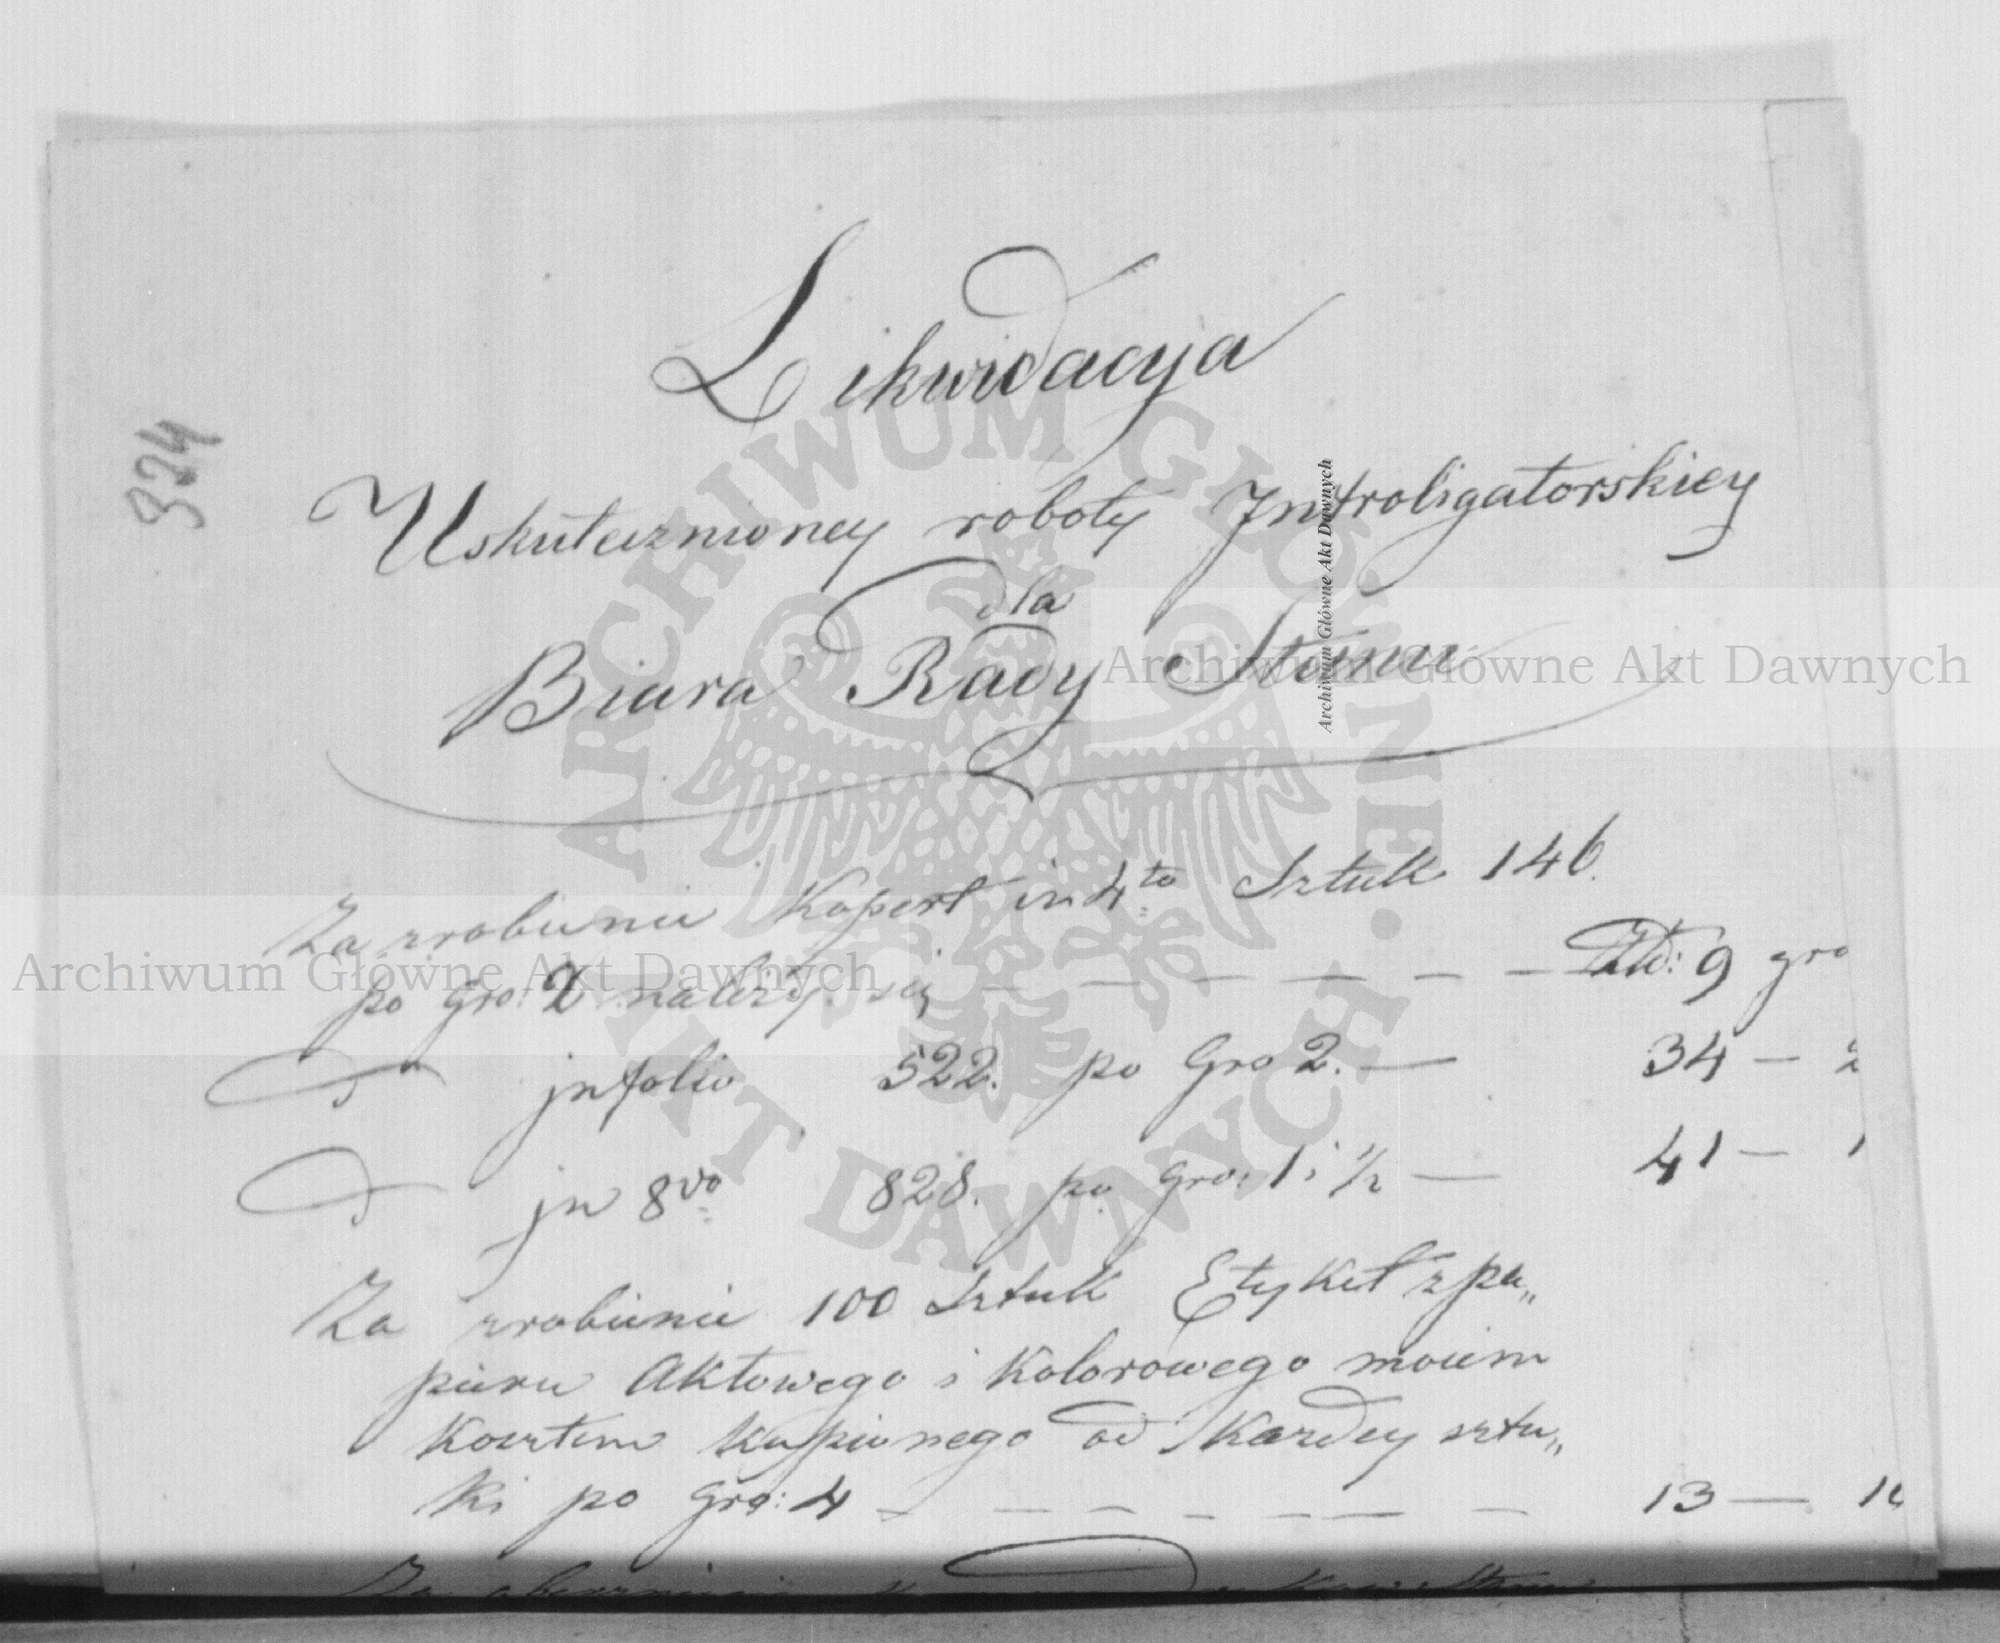 324
Likwidacyja
Uskutecznioney roboty Jntroligatorskiey
dla
Biura Rady Stanu
Za zrobienie Kopert in 4to Sztuk 146.
po gro: 2 należy się — — — — — — Złł: 9 gro
D jnfolio 522. po Gro 2. — 34 — 2
D jn 8vo 828. po gro: 1 i ½ — 41 — 1
Za zrobienie 100 Sztuk Etykiet z pa„
pieru Aktowego i Kolorowego moiem
Kosztem kupionego od Każdey sztu„
ki po gro: 4 — — — — — — — 13 — 1
Za
ARCHIWUM GŁÓWNE • AKT DAWNYCH •
Archiwum Główne Akt Dawnych
Archiwum Główne Akt Dawnych
Archiwum Główne Akt Dawnych